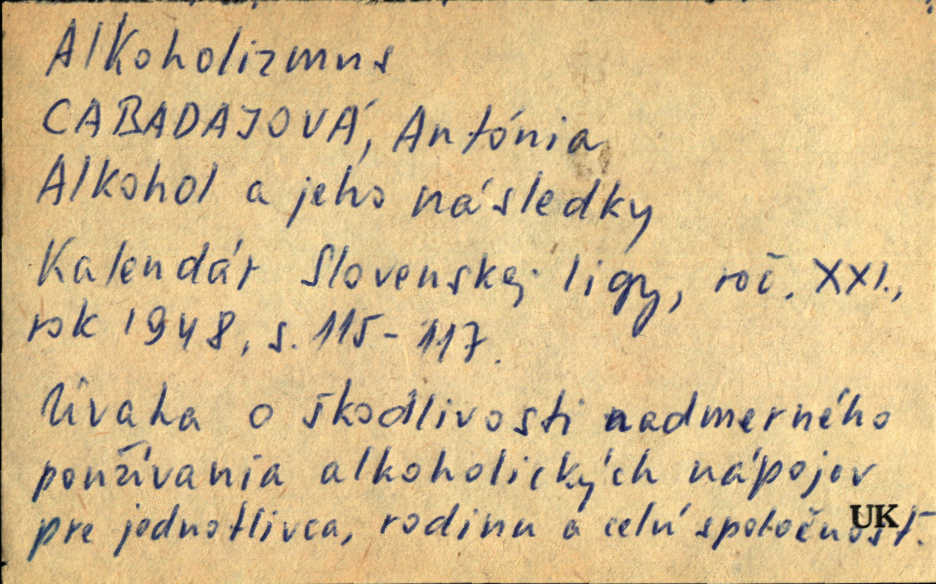 Alkoholizmus
CABADAJOVÁ, Antónia
Alkohol a jeho následky
Kalendár Slovenskej ligy, roč. XXI.,
rok 1948, s. 115-117.
Úvaha o škodlivosti nadmerného
používania alkoholických nápojov
pre jednotlivca, rodinu a celú spoločnosť.
UK